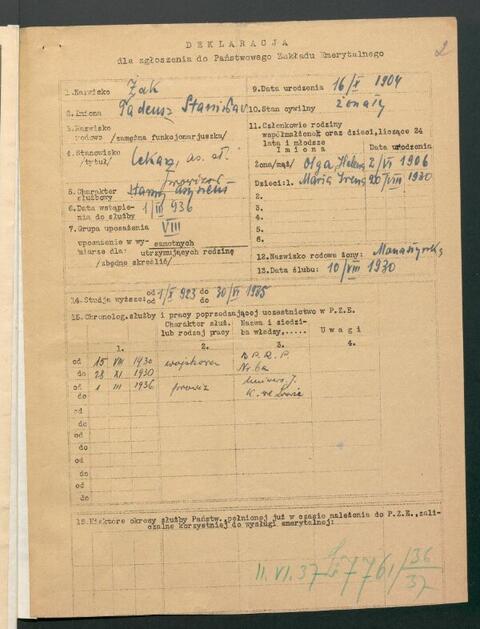 2
DEKLARACJA
dla zgłoszenia do Państwowego Zakładu Emerytalnego
1. Nazwisko Żak
2. Imiona Tadeusz Stanisław
3. Nazwisko
rodowe /zamężna funkcjonarjuszka/
4. Stanowisko
/tytuł/ Lekarz, as. st.
5. Charakter
służbowy
6. Data wstąpie-
nia do służby 1/III 936
7. Grupa uposażenia VIII
uposażenie w wy- samotnych
miarze dla: utrzymujących rodzinę
/zbędne skreślić/
9. Data urodzenia 16/X 1904
10. Stan cywilny żonaty
11. Członkowie rodziny
współmałżonek oraz dzieci, liczące 24
lata i młodsze
Imiona Data urodzenia
żona/mąż/ Olga Helena 2/VI 1906
Dzieci: 1. Maria Irena 20/VIII 1930
2.
3.
4.
5.
6.
12. Nazwisko rodowe żony:
13. Data ślubu: 10/VIII 1930
14. Studja wyższe: od 1/X 923 do 30/VI 1935
15. Chronolog. służby i pracy poprzedzającej uczestnictwo w P.Z.E.
Charakter służ. lub rodzaj pracy
Nazwa i siedziba władzy,.....
Uwagi
1. 2. 3. 4.
od 15 VIII 1930 wojskowa
do 28 XI 1930 Nr. 6a
od 1 III 1936 Uniwers. J.
do K. we Lwowie
od
do
od
do
od
do
od
do
16. Niektóre okresy służby Państw., pełnionej już w czasie należenia do P.Z.E., zali-
czalne korzystniej do wysługi emerytalnej:
11. VI. 37 7761/36/37